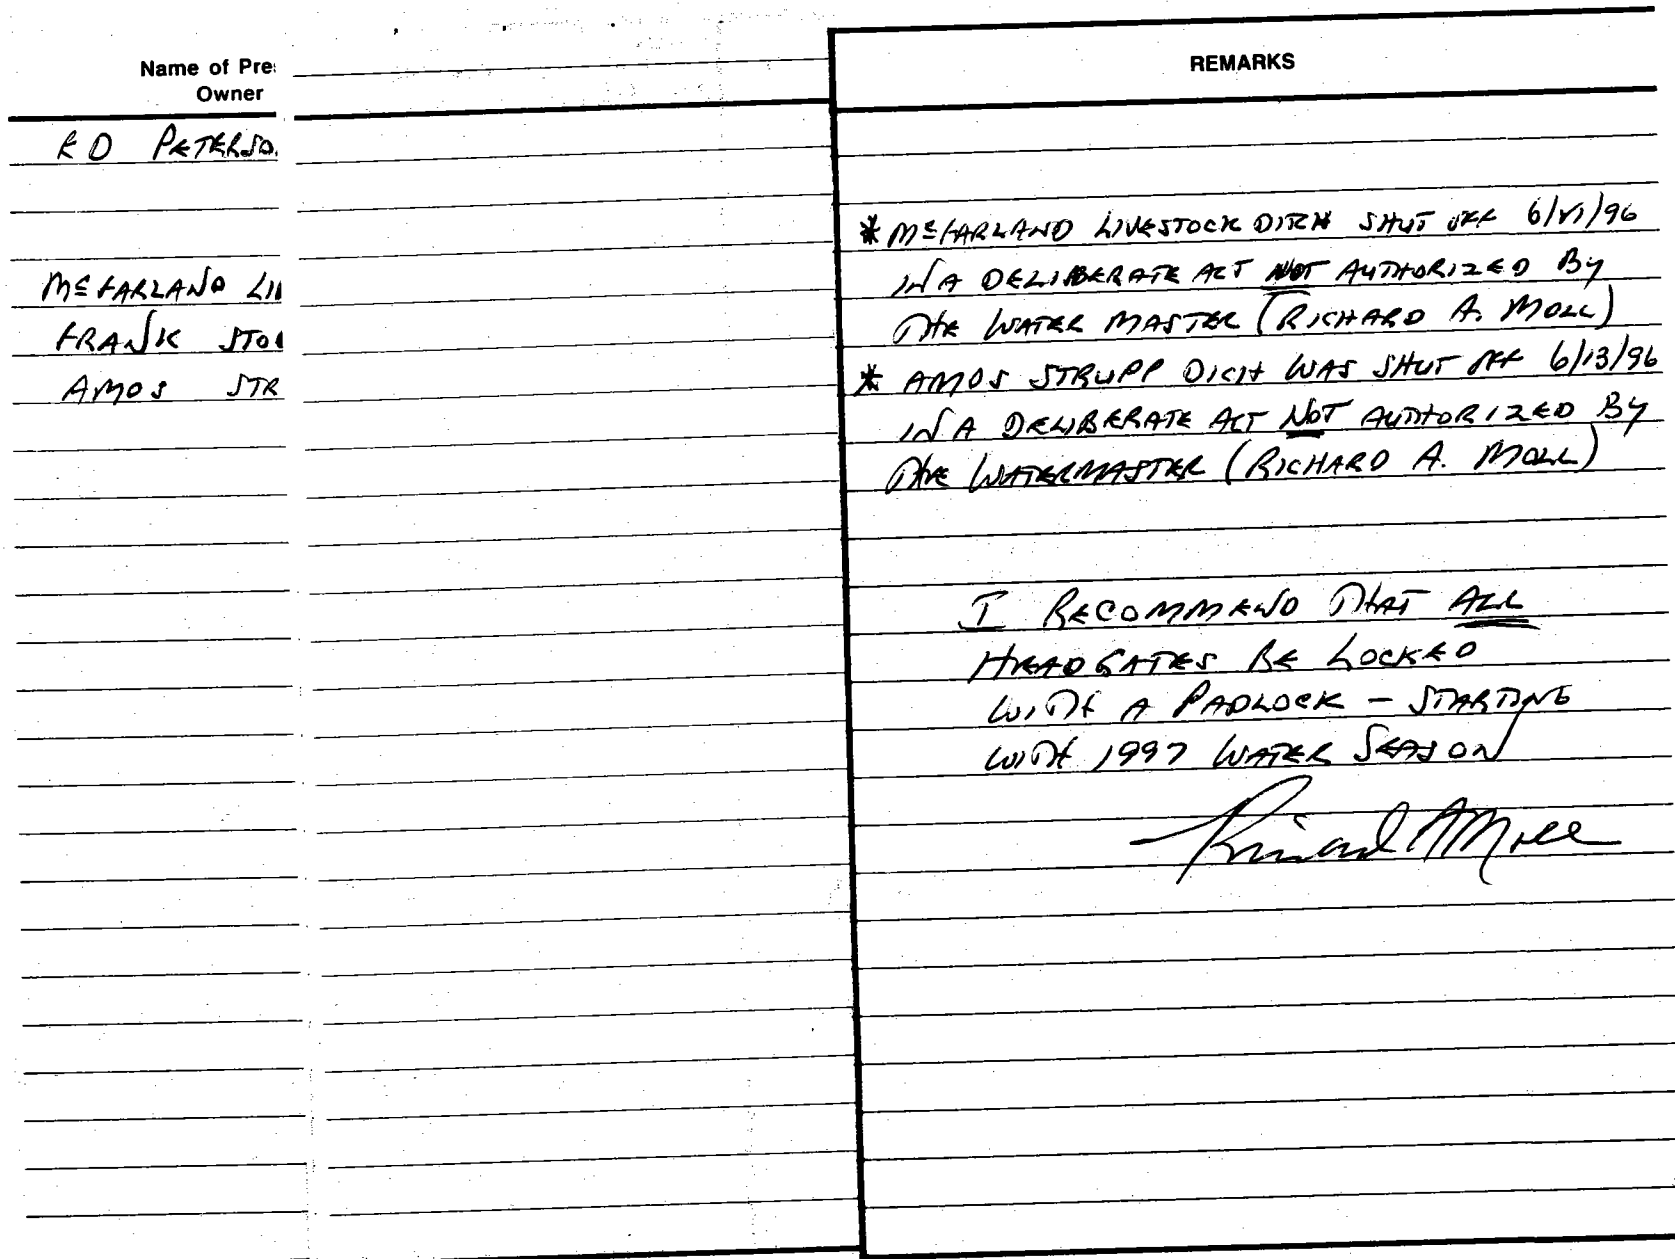 Name of Pre
Owner
REMARKS
PETERSO
McFARLAND LI
FRANK STO
AMOS STR
* McFARLAND LIVESTOCK DITCH SHUT OFF
IN A DELIBERATE ACT NOT AUTHORIZED By
THE WATER MASTER (RICHARD A. MOLL)
* AMOS STRUPP DITCH WAS SHUT OFF 6/13/96
IN A DELIBERATE ACT NOT AUTHORIZED By
THE WATERMASTER (RICHARD A. MOLL)
I RECOMMEND THAT ALL
HEADGATES BE LOCKED
WITH A PADLOCK – STARTING
WITH 1997 WATER SEASON
Richard A Moll